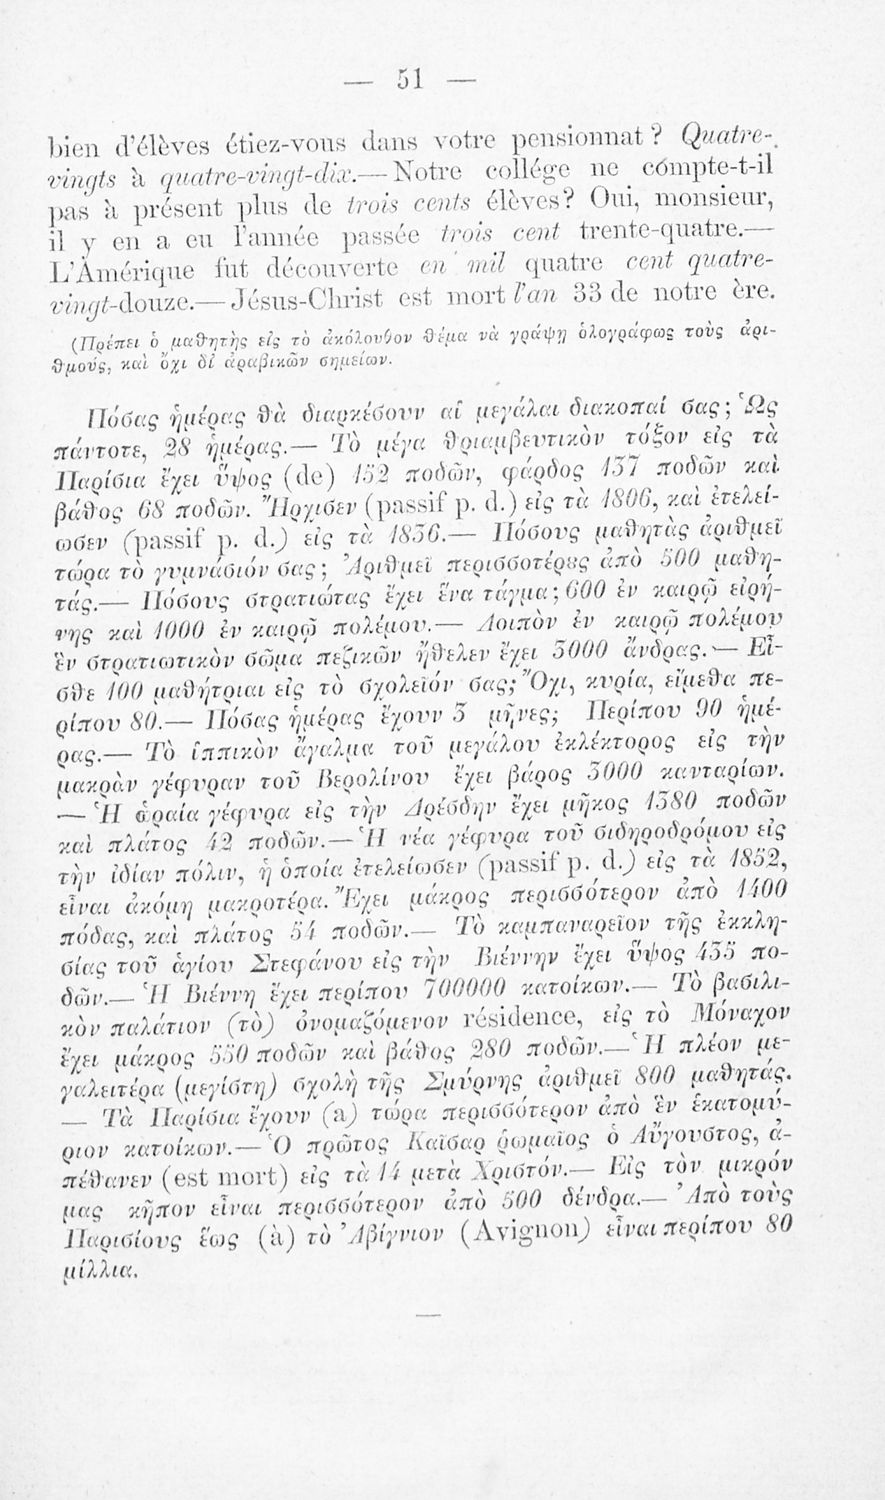 — 51 —
bien d'élèves étiez-vous dans votre pensionnat? Quatre-
vingts à quatre-vingt-dix.— Notre collége ne cómpte-t-il
pas à présent plus de trois cents élèves? Oui, monsieur,
il y en a eu l'année passée trois cent trente-quatre.—
L'Amérique fut découverte en mil quatre cent quatre-
vingt-douze.— Jésus-Christ est mort l'an 33 de notre ère.
(Πρέπει ὁ μαθητὴς εἰς τὸ ἀκόλουθον θέμα νὰ γράψῃ ὁλογράφως τοὺς ἀρι-
θμούς, καὶ ὄχι δι' ἀραβικῶν σημείων.
Πόσας ἡμέρας θὰ διαρκέσουν αἱ μεγάλαι διακοπαί σας; Ὡς
πάντοτε, 28 ἡμέρας.— Τὸ μέγα θριαμβευτικὸν τόξον εἰς τὰ
Παρίσια ἔχει ὕψος (de) 152 ποδῶν, φάρδος 137 ποδῶν καὶ
βάθος 68 ποδῶν. Ἤρχισεν (passif p. d.) εἰς τὰ 1806, καὶ ἐτελεί-
ωσεν (passif p. d.) εἰς τὰ 1836.— Πόσους μαθητὰς ἀριθμεῖ
τώρα τὸ γυμνάσιόν σας; Ἀριθμεῖ περισσοτέρȣς ἀπὸ 500 μαθη-
τάς.— Πόσους στρατιώτας ἔχει ἕνα τάγμα; 600 ἐν καιρῷ εἰρή-
νης καὶ 1000 ἐν καιρῷ πολέμου.— Λοιπὸν ἐν καιρῷ πολέμου
ἓν στρατιωτικὸν σῶμα πεζικῶν ἤθελεν ἔχει 3000 ἄνδρας.— Εἶ-
σθε 100 μαθήτριαι εἰς τὸ σχολεῖόν σας; Ὄχι, κυρία, εἴμεθα πε-
ρίπου 80.— Πόσας ἡμέρας ἔχουν 3 μῆνες; Περίπου 90 ἡμέ-
ρας.— Τὸ ἱππικὸν ἄγαλμα τοῦ μεγάλου ἐκλέκτορος εἰς τὴν
μακρὰν γέφυραν τοῦ Βερολίνου ἔχει βάρος 3000 κανταρίων.
— Ἡ ὡραία γέφυρα εἰς τὴν Δρέσδην ἔχει μῆκος 1380 ποδῶν
καὶ πλάτος 42 ποδῶν.— Ἡ νέα γέφυρα τοῦ σιδηροδρόμου εἰς
τὴν ἰδίαν πόλιν, ἡ ὁποία ἐτελείωσεν (passif p. d.) εἰς τὰ 1852,
εἶναι ἀκόμη μακροτέρα. Ἔχει μάκρος περισσότερον ἀπὸ 1400
πόδας, καὶ πλάτος 54 ποδῶν.— Τὸ καμπαναρεῖον τῆς ἐκκλη-
σίας τοῦ ἁγίου Στεφάνου εἰς τὴν Βιέννην ἔχει ὕψος 435 πο-
δῶν.— Ἡ Βιέννη ἔχει περίπου 700000 κατοίκων.— Τὸ βασιλι-
κὸν παλάτιον (τὸ) ὀνομαζόμενον résidence, εἰς τὸ Μόναχον
ἔχει μάκρος 550 ποδῶν καὶ βάθος 280 ποδῶν.— Ἡ πλέον με-
γαλειτέρα (μεγίστη) σχολὴ τῆς Σμύρνης ἀριθμεῖ 800 μαθητάς.
— Τὰ Παρίσια ἔχουν (a) τώρα περισσότερον ἀπὸ ἓν ἑκατομύ-
ριον κατοίκων.— Ὁ πρῶτος Καῖσαρ ῥωμαῖος ὁ Αὔγουστος, ἀ-
πέθανεν (est mort) εἰς τὰ 14 μετὰ Χριστόν.— Εἰς τὸν μικρόν
μας κῆπον εἶναι περισσότερον ἀπὸ 500 δένδρα.— Ἀπὸ τοὺς
Παρισίους ἕως (à) τὸ Ἀβίγνιον (Avignon) εἶναι περίπου 80
μίλλια.